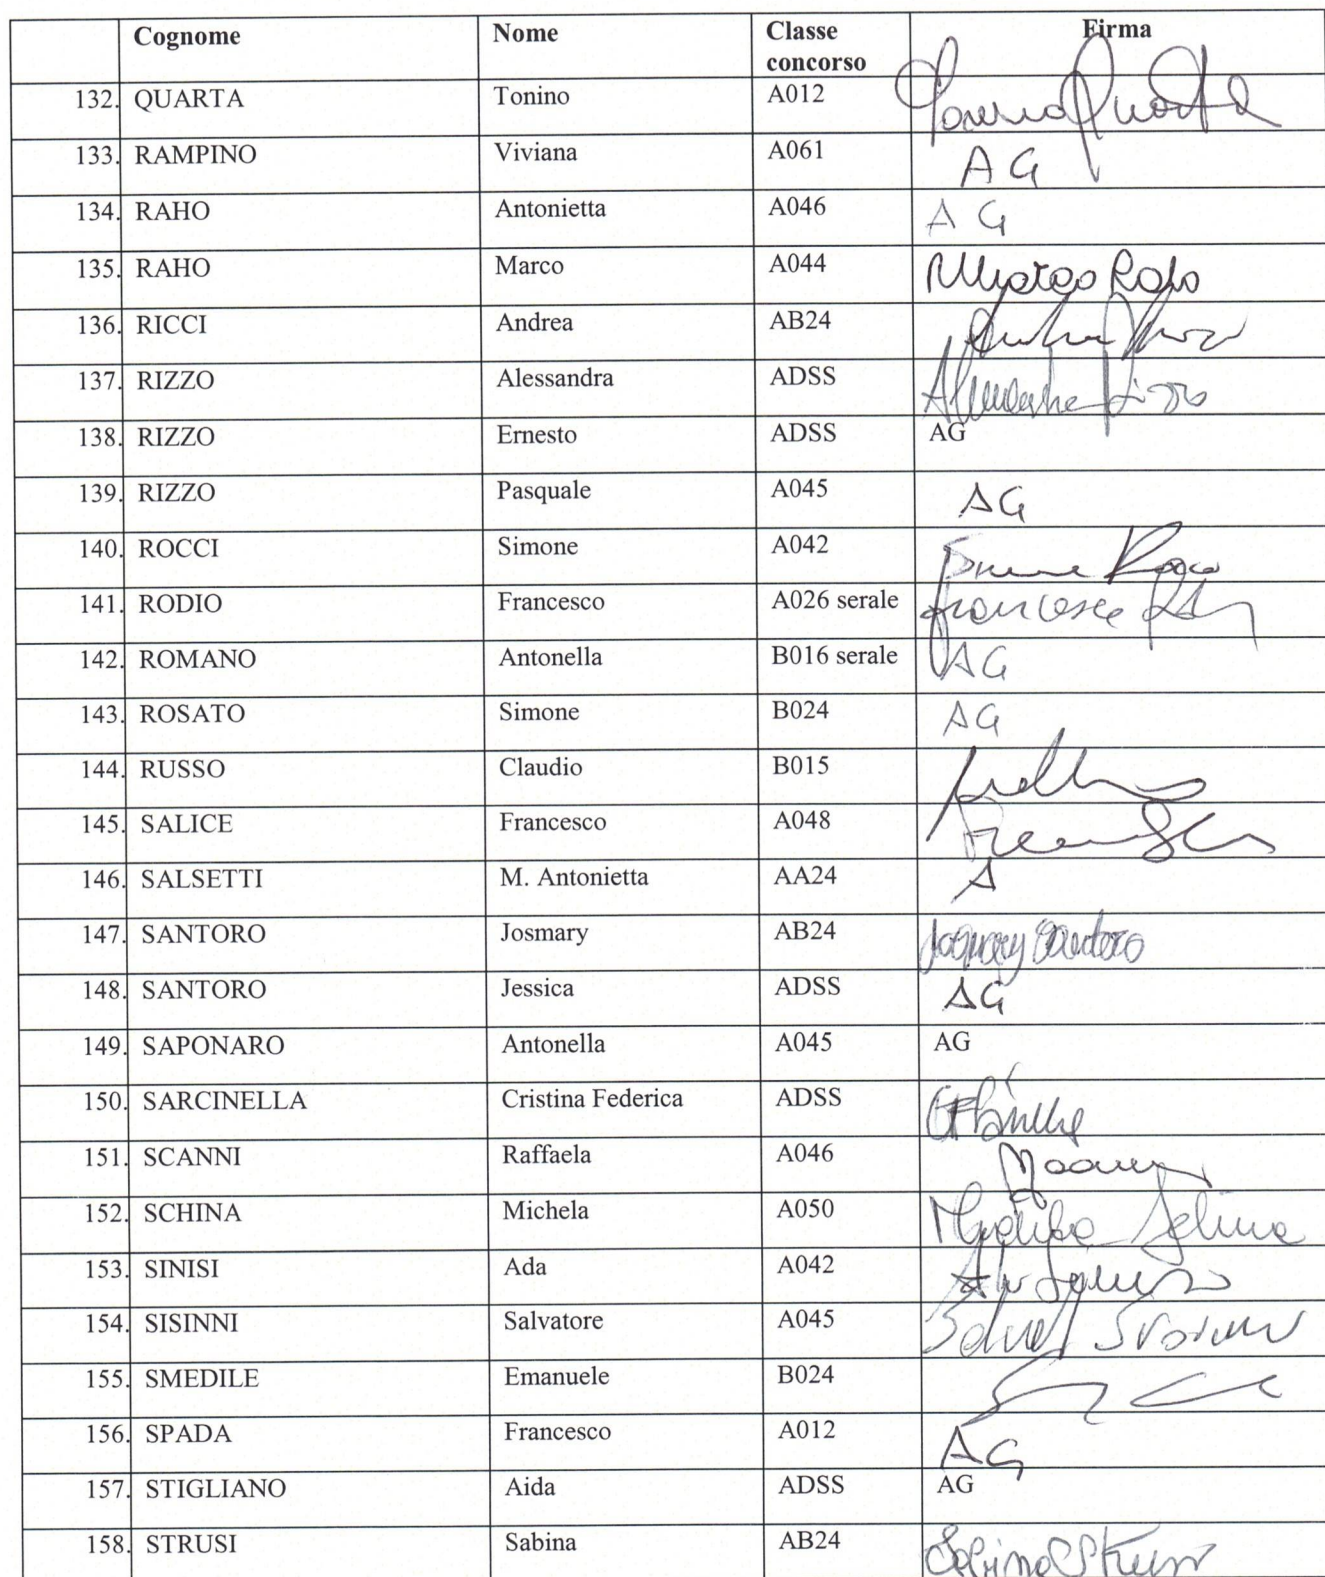 Cognome Nome Classe concorso Firma
132. QUARTA Tonino A012 Tonino Quarta
133. RAMPINO Viviana A061 AG
134. RAHO Antonietta A046 AG
135. RAHO Marco A044 Marco Raho
136. RICCI Andrea AB24 Andrea Ricci
137. RIZZO Alessandra ADSS Alessandra Rizzo
138. RIZZO Ernesto ADSS AG
139. RIZZO Pasquale A045 AG
140. ROCCI Simone A042 Simone Rocci
141. RODIO Francesco A026 serale Francesco
142. ROMANO Antonella B016 serale AG
143. ROSATO Simone B024 AG
144. RUSSO Claudio B015
145. SALICE Francesco A048
146. SALSETTI M. Antonietta AA24 A
147. SANTORO Josmary AB24 Josmary Santoro
148. SANTORO Jessica ADSS AG
149. SAPONARO Antonella A045 AG
150. SARCINELLA Cristina Federica ADSS
151. SCANNI Raffaela A046
152. SCHINA Michela A050 Michela Schina
153. SINISI Ada A042
154. SISINNI Salvatore A045
155. SMEDILE Emanuele B024
156. SPADA Francesco A012 AG
157. STIGLIANO Aida ADSS AG
158. STRUSI Sabina AB24 Sabina Strusi